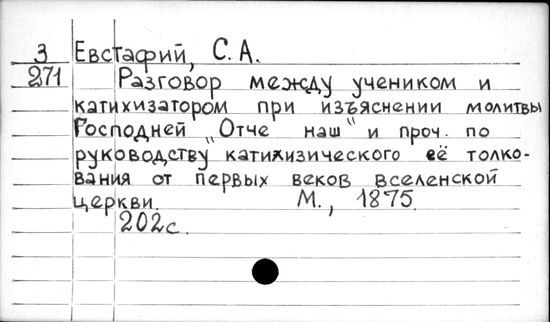 3 Евстафий, С. А.
271 Разговор между учеником и
катихизатором при изъяснении молитвы
Господней „Отче наш" и проч. по
руководству катихизического её толко-
вания от первых веков вселенской
церкви. М., 1875.
202с.